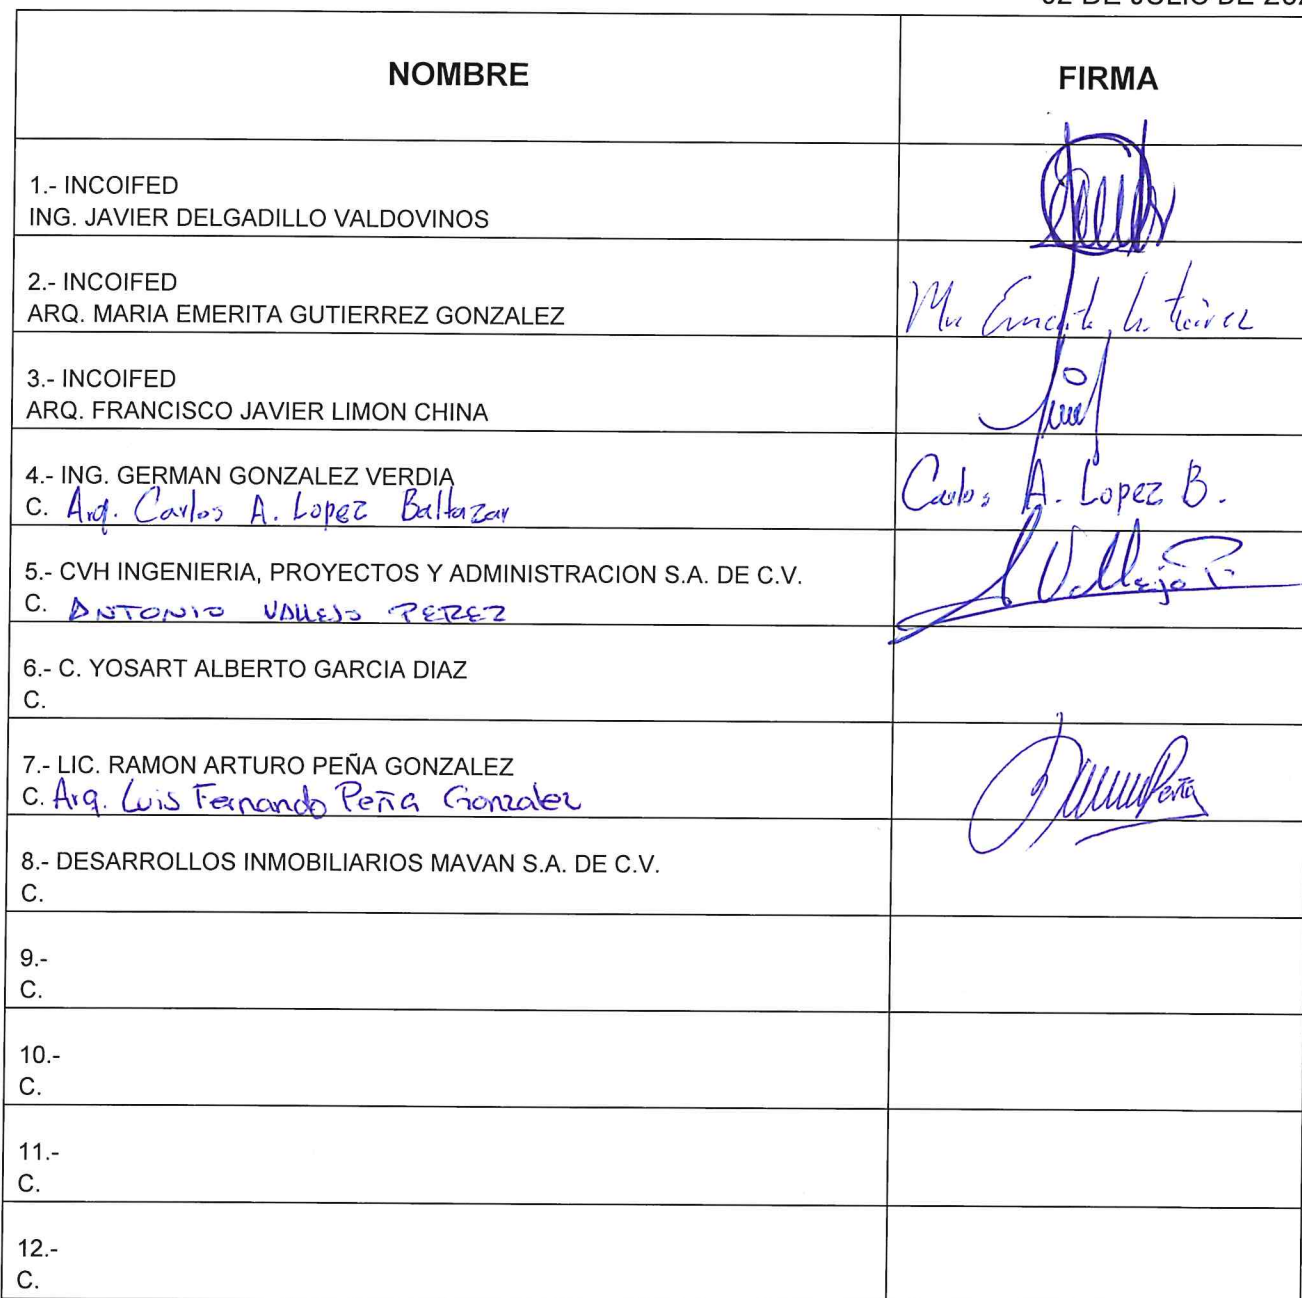 DE JULIO DE
NOMBRE
FIRMA
1.- INCOIFED
ING. JAVIER DELGADILLO VALDOVINOS
2.- INCOIFED
ARQ. MARIA EMERITA GUTIERREZ GONZALEZ
3.- INCOIFED
ARQ. FRANCISCO JAVIER LIMON CHINA
4.- ING. GERMAN GONZALEZ VERDIA
C. Arq. Carlos A. Lopez Baltazar
Carlos A. Lopez B.
5.- CVH INGENIERIA, PROYECTOS Y ADMINISTRACION S.A. DE C.V.
C. ANTONIO VALLEJO PEREZ
Vallejo P.
6.- C. YOSART ALBERTO GARCIA DIAZ
C.
7.- LIC. RAMON ARTURO PEÑA GONZALEZ
C. Arq. Luis Fernando Peña Gonzalez
Peña
8.- DESARROLLOS INMOBILIARIOS MAVAN S.A. DE C.V.
C.
9.-
C.
10.-
C.
11.-
C.
12.-
C.